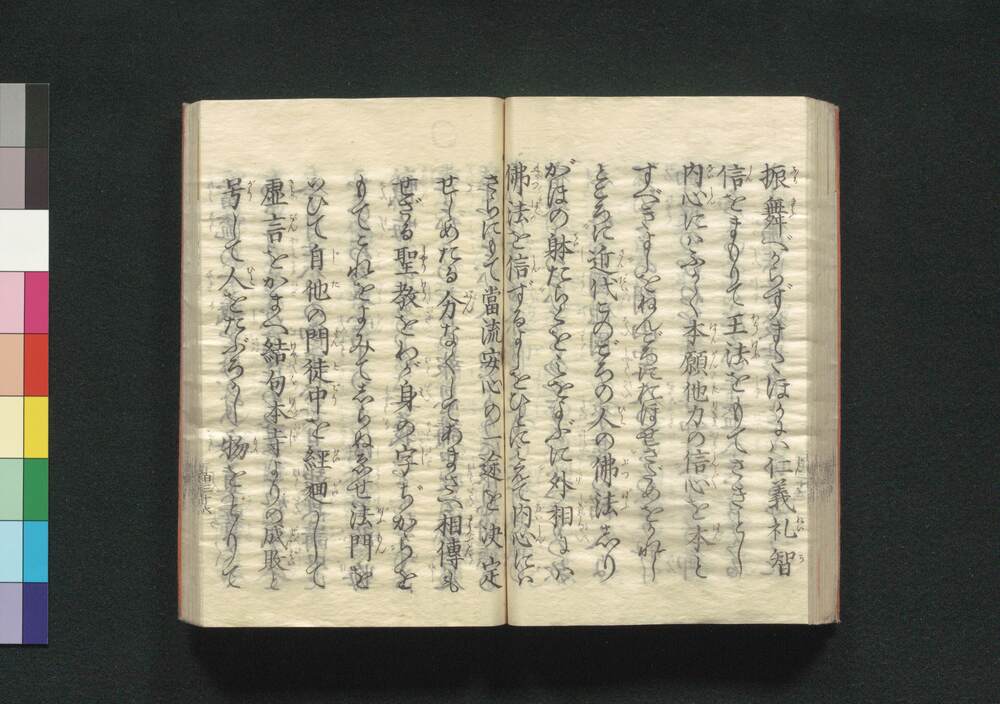 振舞べからずまたほかには仁義礼智
信をまもりて王法をもてさきとし
内心にはふかく本願他力の信心を本と
すべきよしをねんごろにおほせさだめをかれし
ところに近代このごろの人の佛法しり
がほの躰たらくをみをよぶに外相には
佛法を信ずるよしをひとにみえて内心には
さらにもて當流安心の一途を決定
せしめたる分なくしてあまさへ相傳も
せざる聖教をわが身の字ぢからをも
もてこれをよみてしらぬゑせ法門を
いひて自他の門徒中を経廻して
虚言をかまへ結句本寺よりの成敗と
号して人をたぶろかし物をとりて